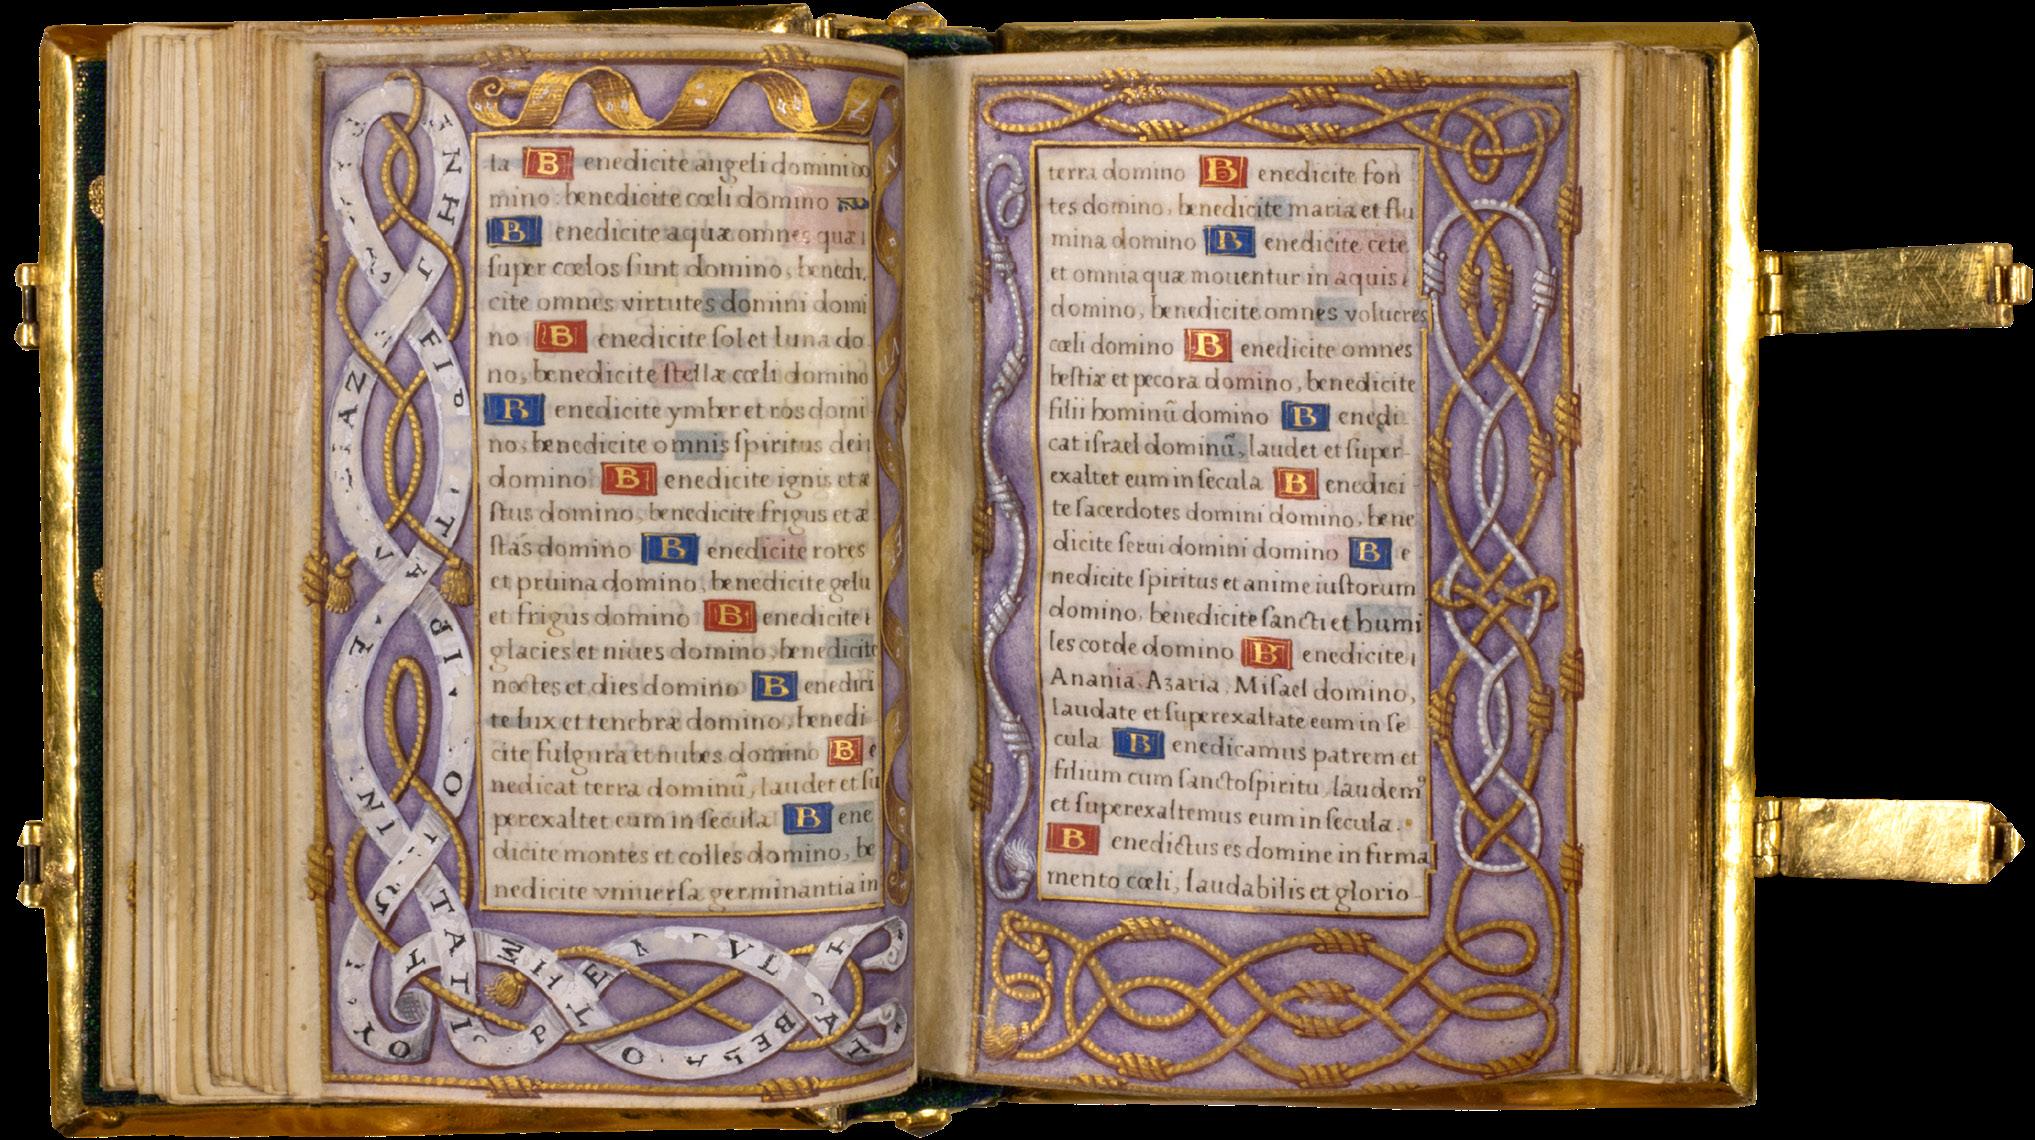 la B enedicite angeli domini do
mino: benedicite cœli domino
B enedicite aquæ omnes quæ
ſuper cœlos ſunt domino, benedi,
cite omnes virtutes domini domi
no B enedicite ſol et luna do
no, benedicite ſtellæ cœli domino
B enedicite ymber et ros domi
no, benedicite omnis ſpiritus dei
domino B enedicite ignis et æ
ſtus domino, benedicite frigus et æ
ſtas domino B enedicite rores
et pruina domino, benedicite gelu
et frigus domino B enedicite
glacies et niues domino, benedicite
noctes et dies domino B enedici
te lux et tenebræ domino, benedi
cite fulgura et nubes domino B e
nedicat terra dominũ, laudet et ſu
perexaltet eum in ſecula B ene
dicite montes et colles domino, be
nedicite vniuerſa germinantia in
terra domino B enedicite fon
tes domino, benedicite maria et flu
mina domino B enedicite cete
et omnia quæ mouentur in aquis
domino, benedicite omnes volucres
cœli domino B enedicite omnes
beſtiæ et pecora domino, benedicite
filii hominũ domino B enedi
cat iſrael dominũ, laudet et ſuper-
exaltet eum in ſecula B enedici
te ſacerdotes domini domino, bene
dicite ſerui domini domino B e
nedicite ſpiritus et anime iuſtorum
domino, benedicite ſancti et humi
les corde domino B enedicite
Anania, Azaria, Miſael domino,
laudate et ſuperexaltate eum in ſe
cula B enedicamus patrem et
filium cum ſancto ſpiritu, laudem⁹
et ſuperexaltemus eum in ſecula.
B enedictus es domine in firma
mento cœli, laudabilis et glorio